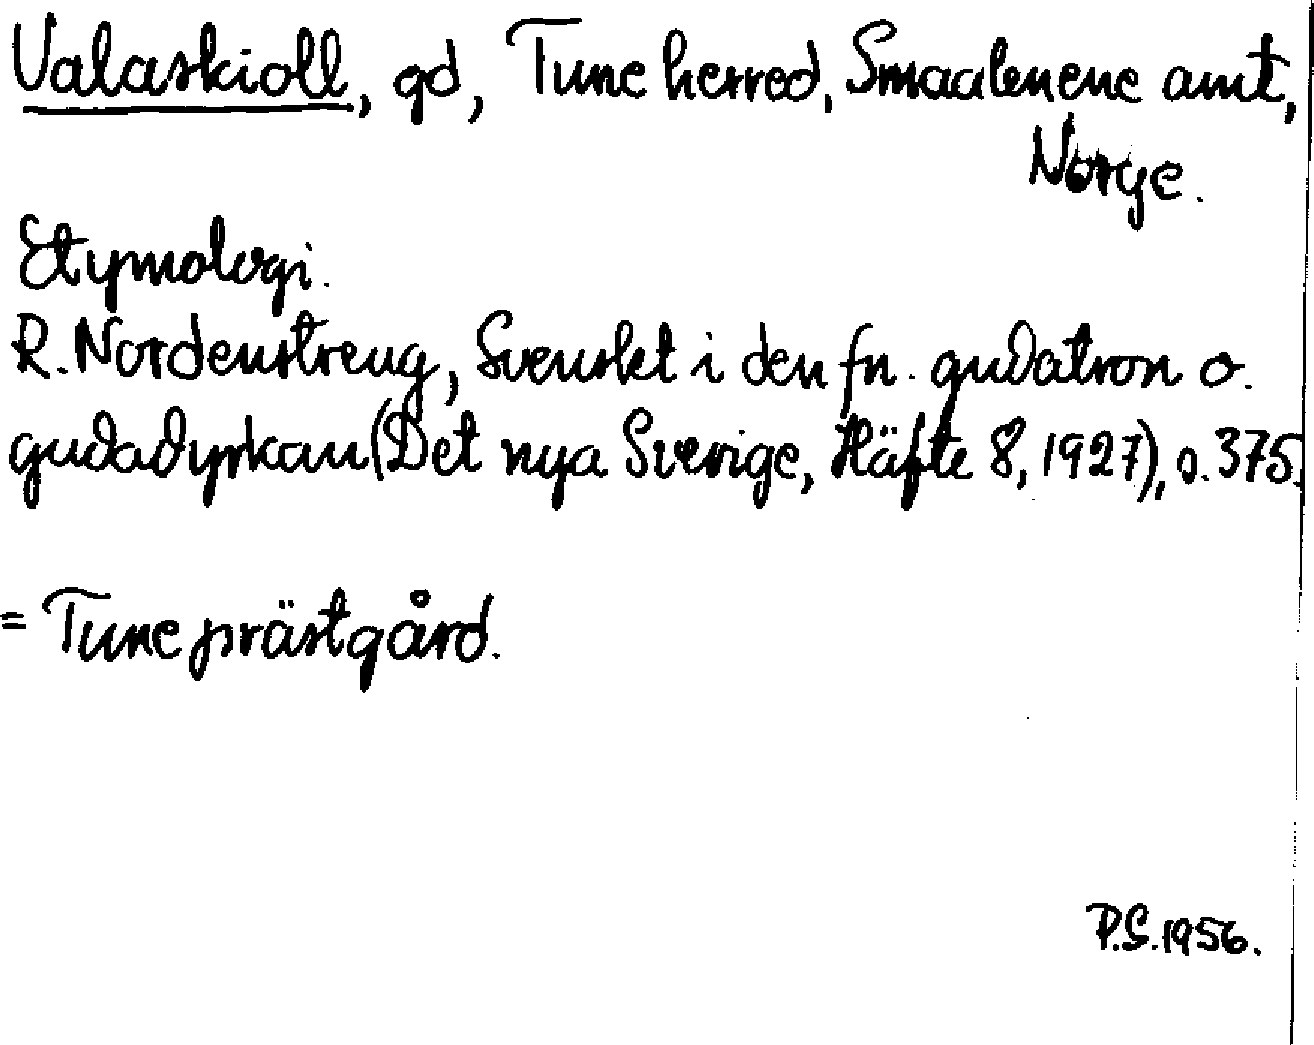 Valaskioll, gd, Tune herred, Smaalenene amt,
Norge.
Etymologi.
R. Nordenstreng, Svenskt i den fn. gudatron o.
gudadyrkan (Det nya Sverige, Häfte 8, 1927), s. 375.
= Tune prästgård.
P.S. 1956.